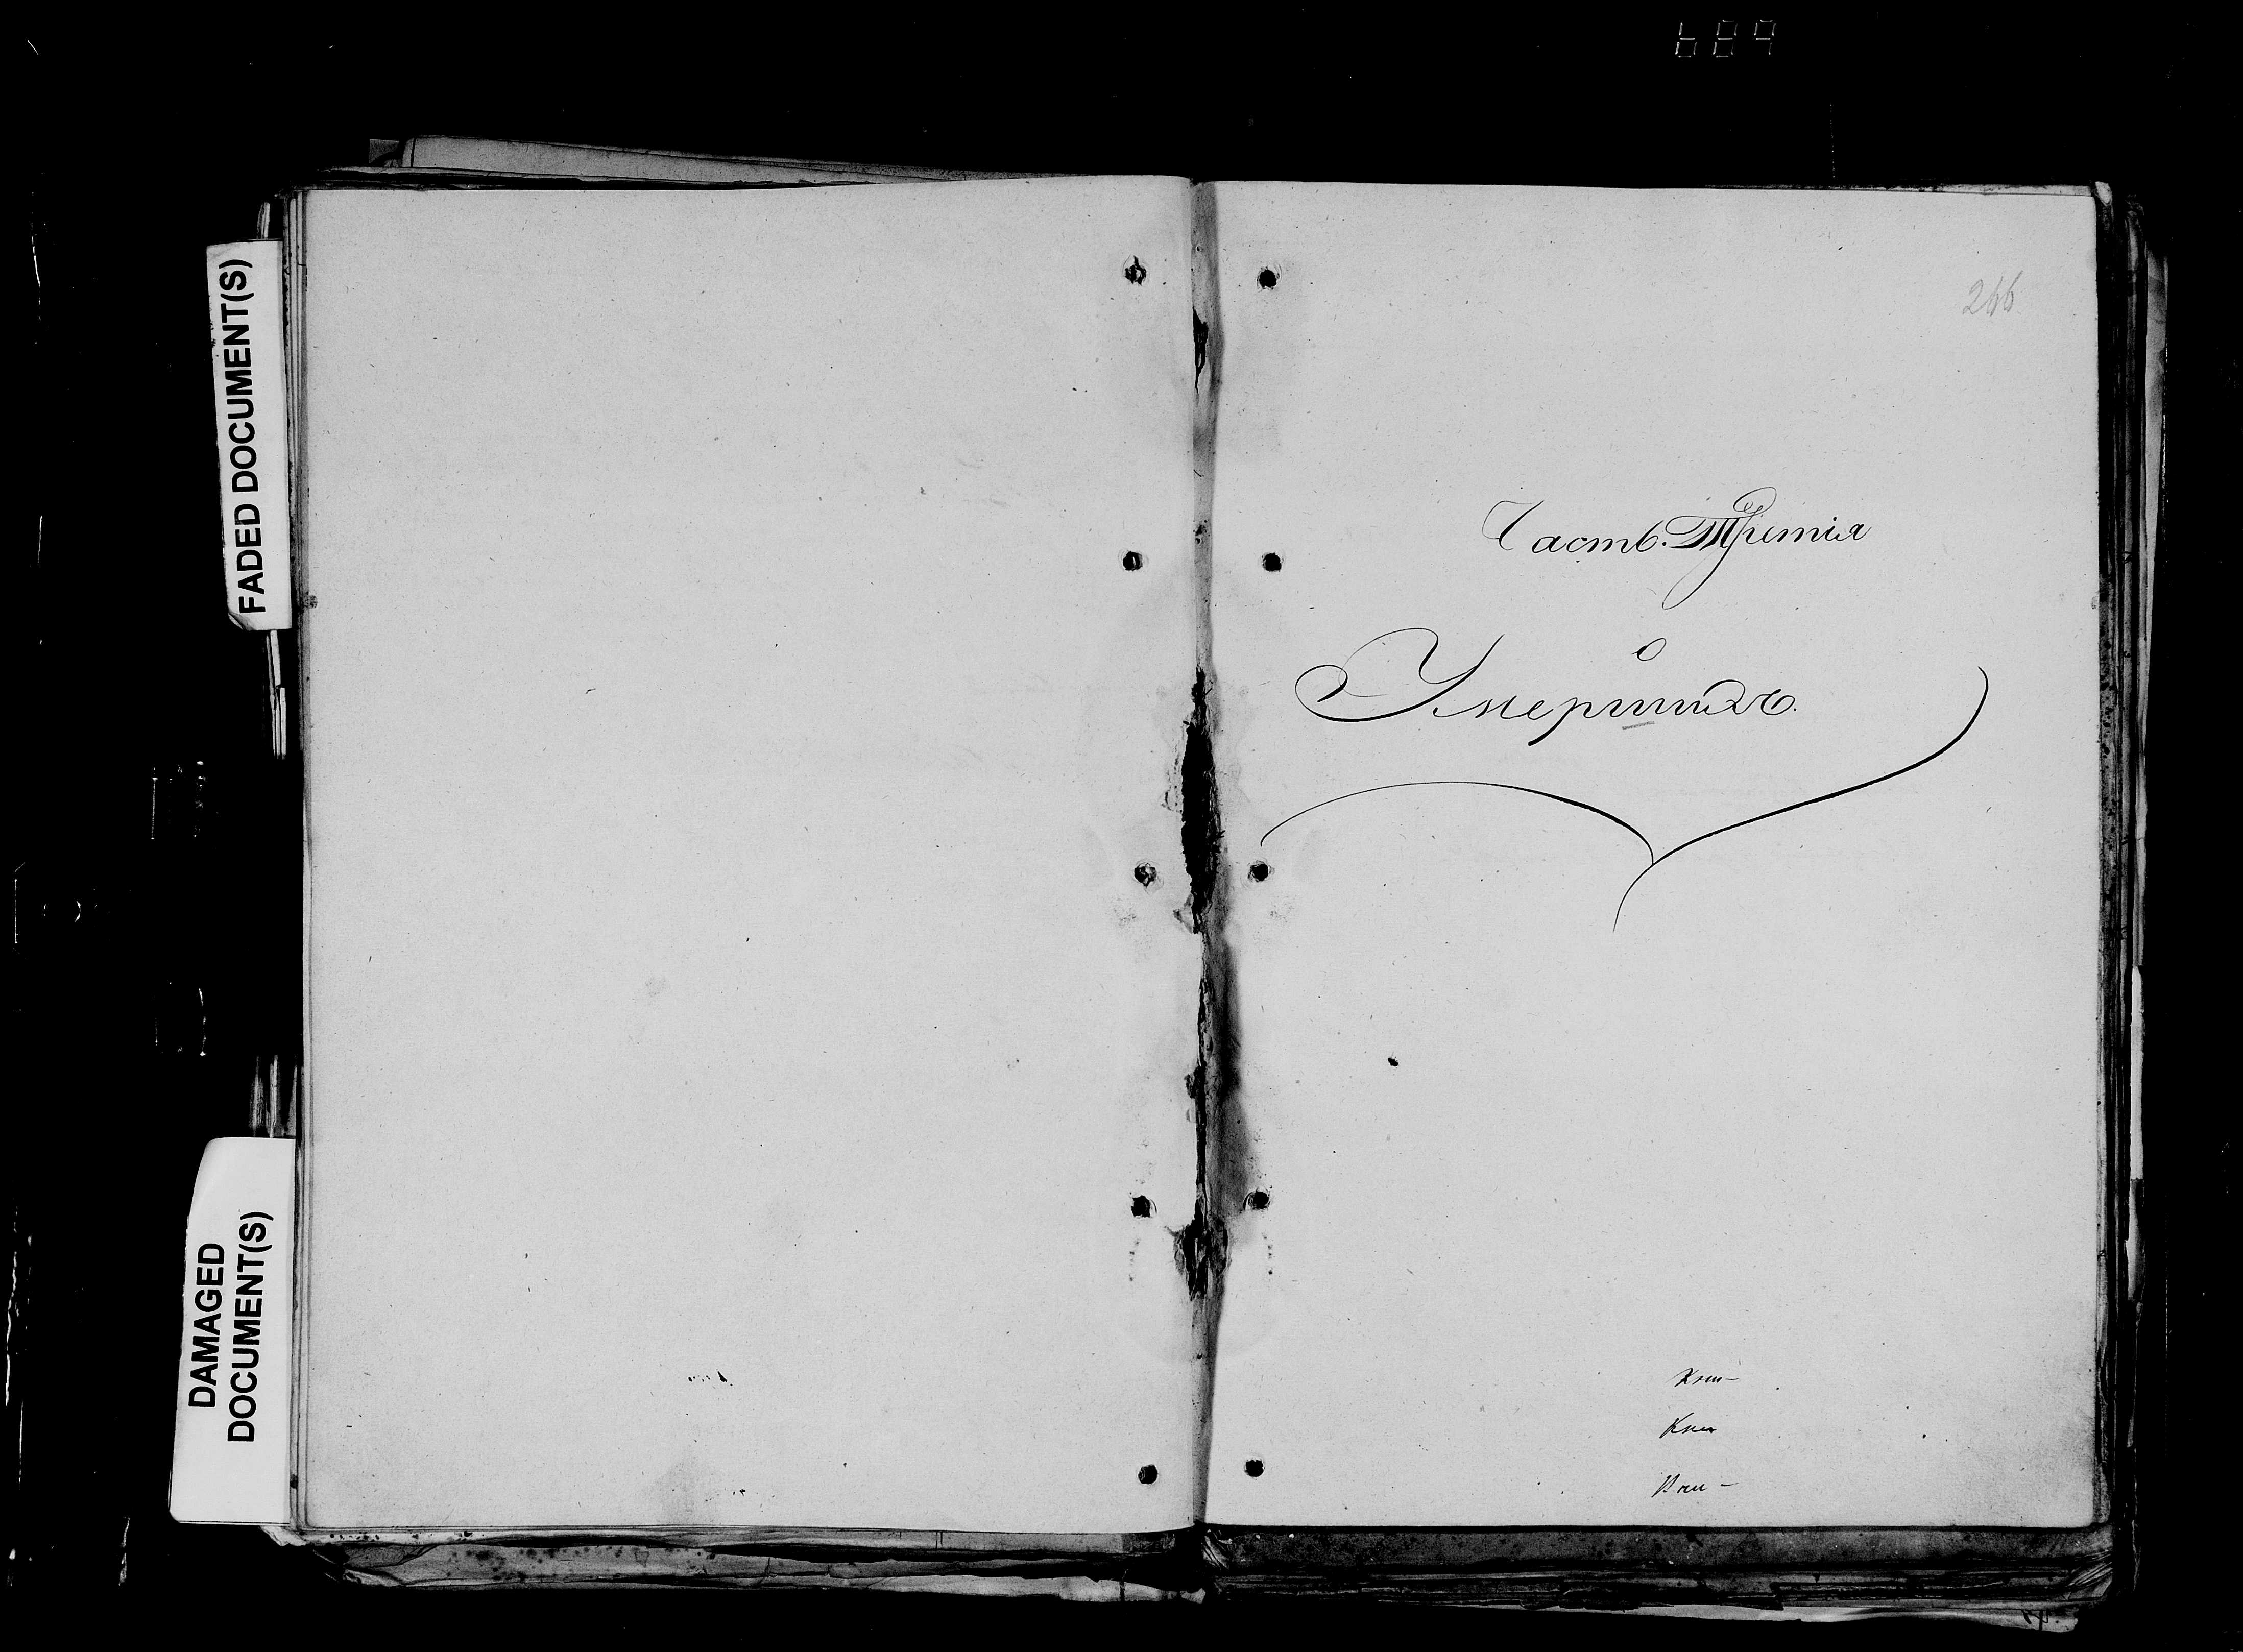 689
FADED DOCUMENT(S)
DAMAGED
DOCUMENT(S)
266
Часть Третія
о
Умершихъ.
Кни-